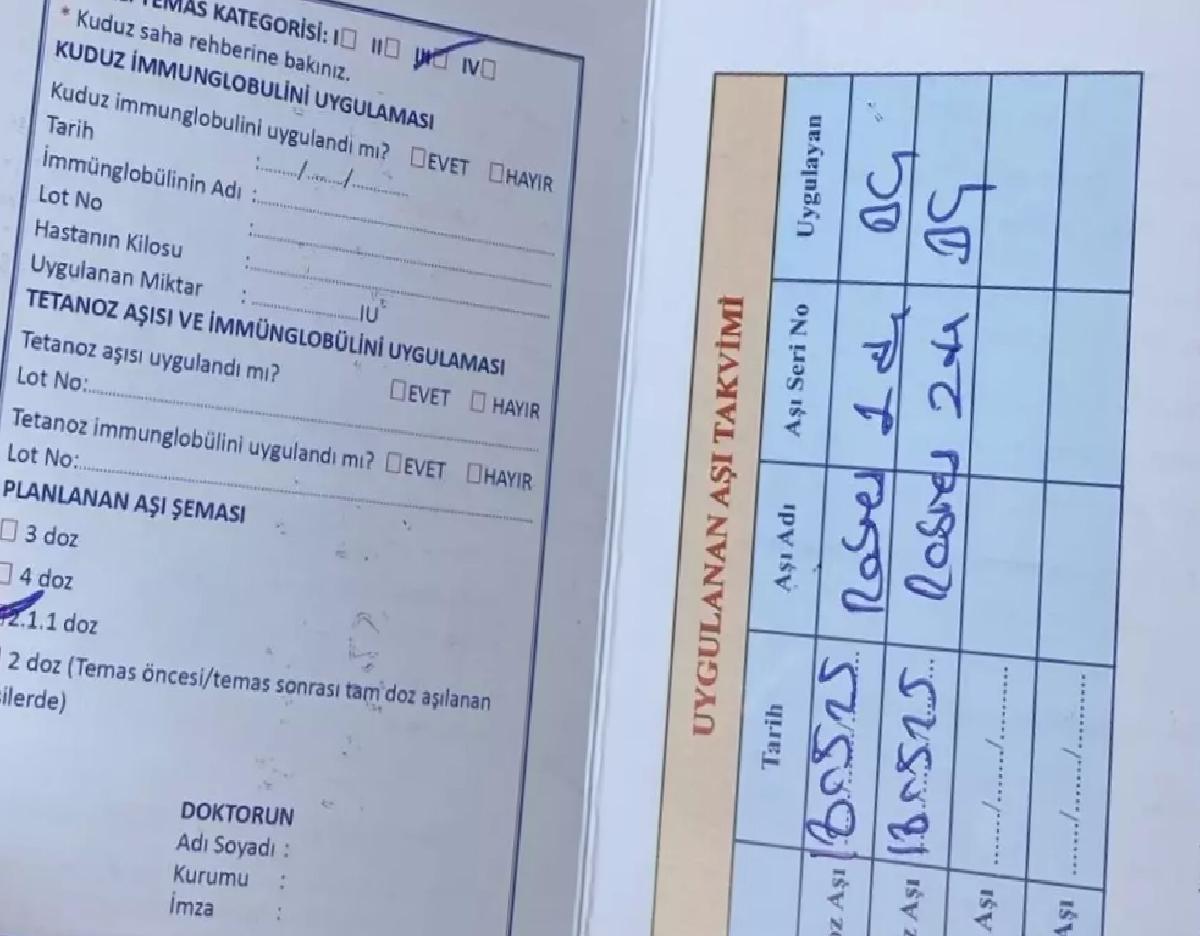 TEMAS KATEGORİSİ: I□ II□ III□ IV□
* Kuduz saha rehberine bakınız.
KUDUZ İMMUNGLOBULİNİ UYGULAMASI
Kuduz immunglobulini uygulandi mı? □EVET □HAYIR
Tarih :......../......../............
İmmünglobülinin Adı :
Lot No :
Hastanın Kilosu :
Uygulanan Miktar :....................IU
TETANOZ AŞISI VE İMMÜNGLOBÜLİNİ UYGULAMASI
Tetanoz aşısı uygulandı mı? □EVET □ HAYIR
Lot No:
Tetanoz immunglobülini uygulandı mı? □EVET □HAYIR
Lot No:
PLANLANAN AŞI ŞEMASI
□ 3 doz
□ 4 doz
2.1.1 doz
2 doz (Temas öncesi/temas sonrası tam doz aşılanan
silerde)
DOKTORUN
Adı Soyadı :
Kurumu :
İmza :
UYGULANAN AŞI TAKVİMİ
Tarih Aşı Adı Aşı Seri No Uygulayan
oz Aşı
z Aşı
Aşı ....../....../............
Aşı ....../....../............